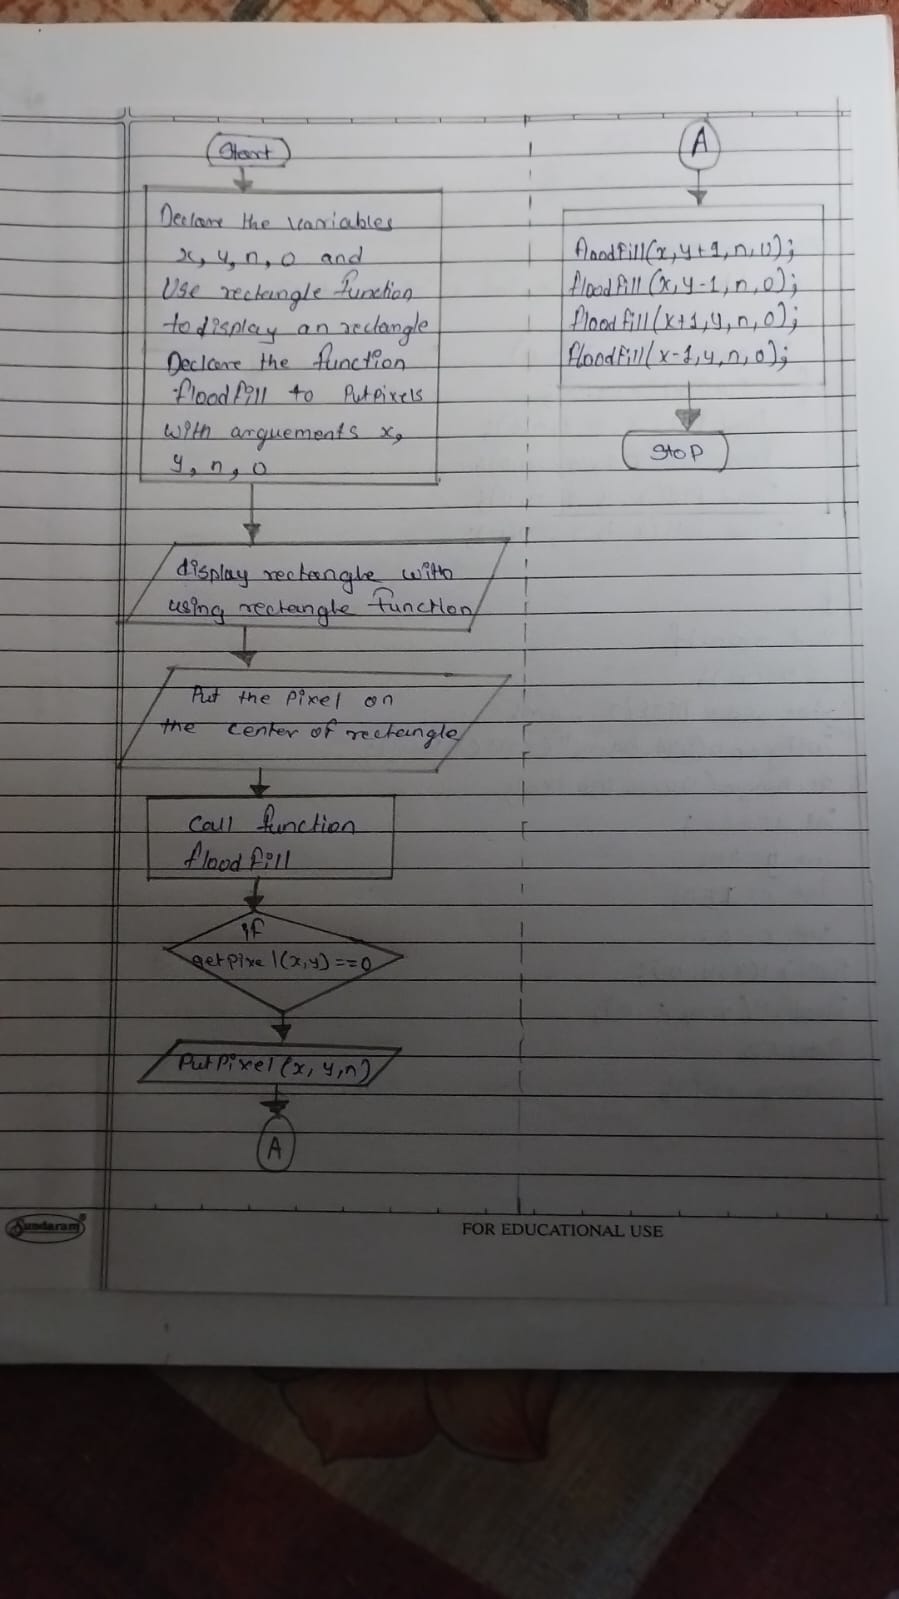 Start
Declare the variables
x, y, n, o and
Use rectangle function
to display an rectangle
Declare the function
floodfill to Putpixels
with arguements x,
y, n, o
display rectangle with
using rectangle function
Put the Pixel on
the center of rectangle
Call function
floodfill
if
getpixel(x,y)==0
PutPixel(x, y,n)
A
A
floodfill(x,y+1,n,o);
floodfill(x,y-1,n,o);
floodfill(x+1,y,n,o);
floodfill(x-1,y,n,o);
Stop
Sundaram®
FOR EDUCATIONAL USE